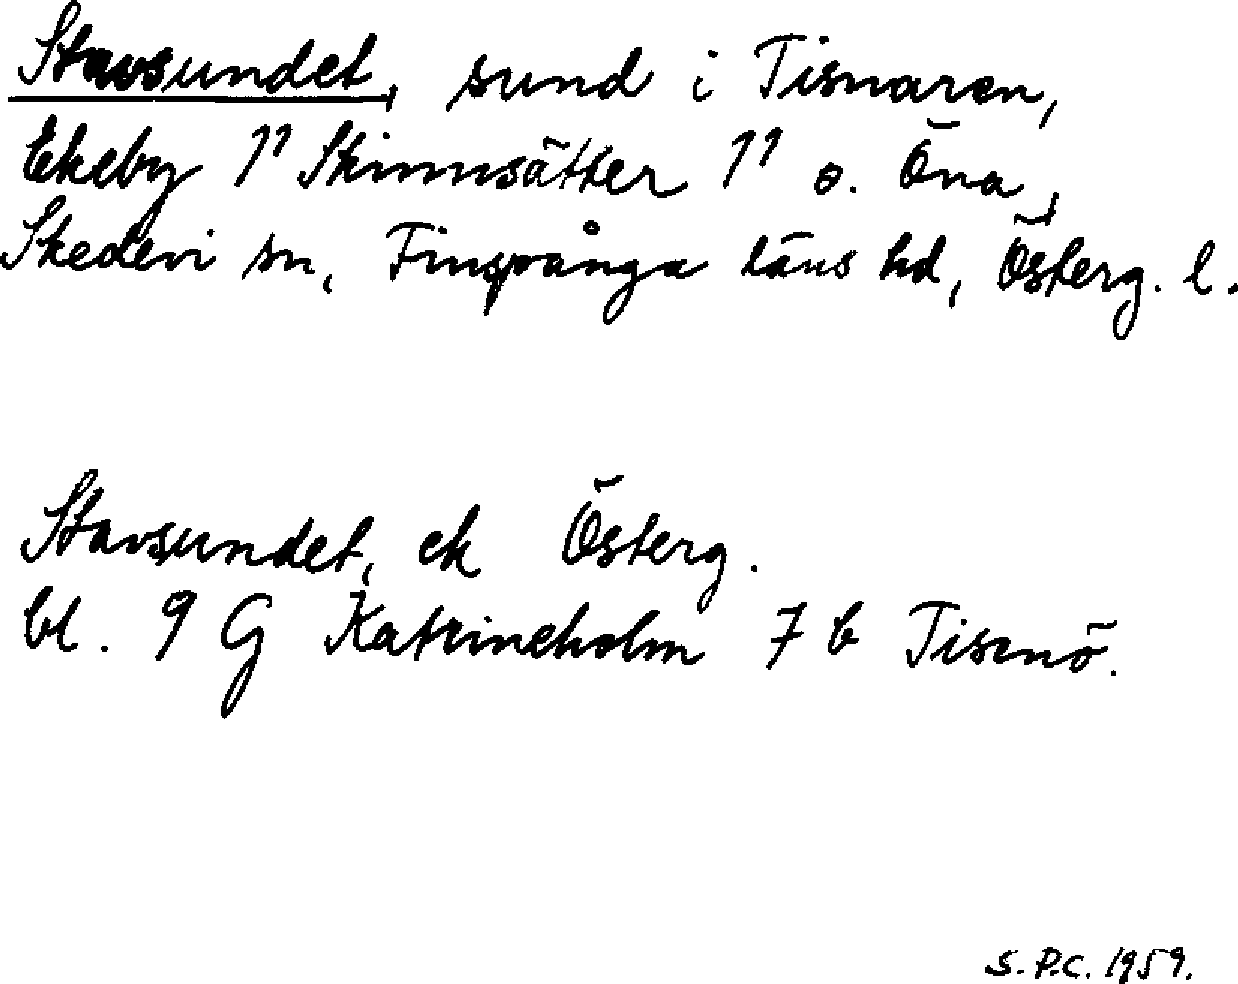 Stavsundet, sund i Tisnaren,
Ekeby 1¹ Skinnsätter 1¹ o. Öna,
Skedevi sn, Finspånga läns hd, Österg. l.
Stavsundet, ek Österg.
bl. 9 G Katrineholm 7 b Tisenö.
S.P.C. 1959.